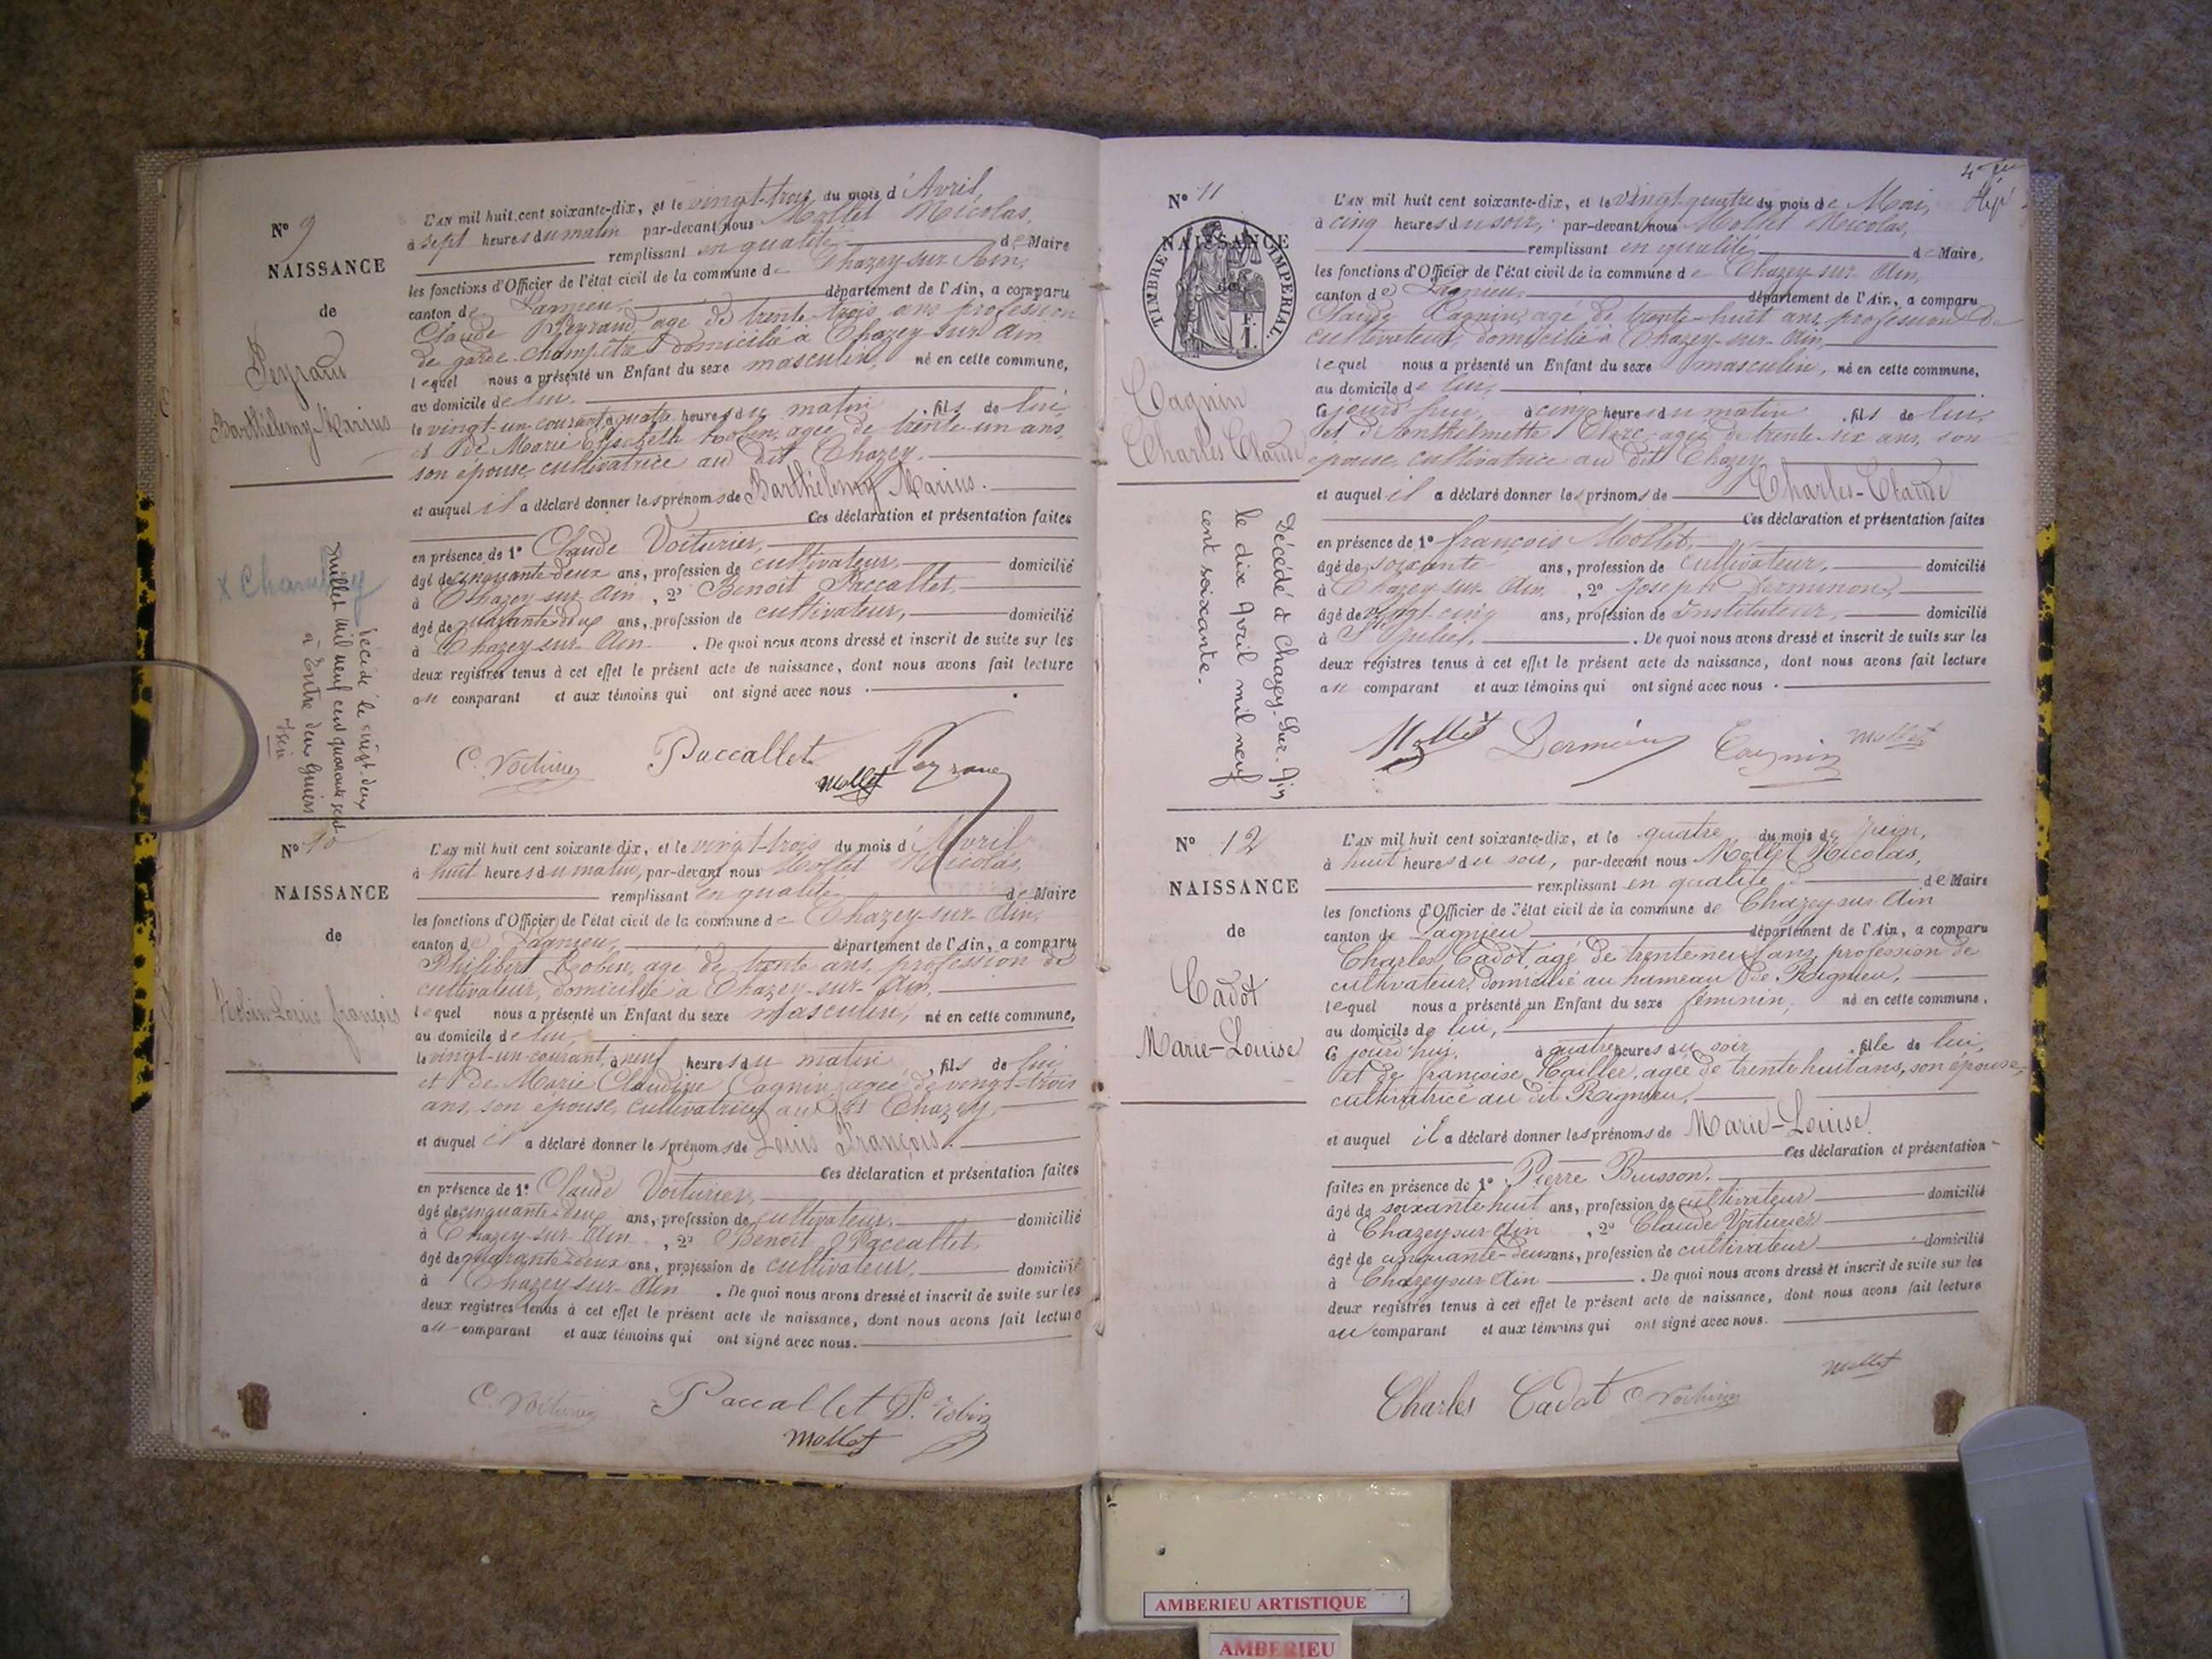 Nº 9
NAISSANCE
de
Peyraud
Barthélemy Marius
L'AN mil huit cent soixante-dix, et le vingt-trois du mois d'Avril,
à sept heures du matin par-devant nous Mollet Nicolas,
remplissant en qualité de Maire
les fonctions d'Officier de l'état civil de la commune de Chazey-sur-Ain,
canton de Lagnieu, département de l'Ain, a comparu
Claude Peyraud, agé de trente-trois ans profession
de garde-champêtre domicilié à Chazey-sur-Ain
lequel nous a présenté un Enfant du sexe masculin, né en cette commune,
au domicile de lui,
le vingt-un courant, à quatre heures du matin, fils de lui,
et de Marie Elisabeth Robin, agée de trente-un ans,
son épouse, cultivatrice au dit Chazey.
et auquel il a déclaré donner les prénoms de Barthélemy Marius.
Ces déclaration et présentation faites
en présence de 1º Claude Voiturier,
âgé de cinquante-deux ans, profession de cultivateur, domicilié
à Chazey-sur-Ain, 2º Benoit Paccallet,
âgé de quarante-deux ans, profession de cultivateur, domicilié
à Chazey-sur-Ain. De quoi nous avons dressé et inscrit de suite sur les
deux registres tenus à cet effet le présent acte de naissance, dont nous avons fait lecture
au comparant et aux témoins qui ont signé avec nous.
Décédé le vingt-deux
juillet mil neuf cent quarante sept
à Entre deux Guiers
Isère
C. Voiturier Paccallet Mollet Peyraud
Nº 10
NAISSANCE
de
Robin Louis françois
L'AN mil huit cent soixante-dix, et le vingt-trois du mois d'Avril
à huit heures du matin, par-devant nous Mollet Nicolas,
remplissant en qualité de Maire
les fonctions d'Officier de l'état civil de la commune de Chazey-sur-Ain,
canton de Lagnieu, département de l'Ain, a comparu
Philibert Robin, agé de trente ans, profession de
cultivateur, domicilié à Chazey-sur-Ain,
lequel nous a présenté un Enfant du sexe masculin, né en cette commune,
au domicile de lui,
le vingt-un courant, à neuf heures du matin, fils de lui
et de Marie Claudine Cagnin, agée de vingt-trois
ans, son épouse, cultivatrice au dit Chazey,
et auquel il a déclaré donner les prénoms de Louis François.
Ces déclaration et présentation faites
en présence de 1º Claude Voiturier,
âgé de cinquante-deux ans, profession de cultivateur, domicilié
à Chazey-sur-Ain, 2º Benoit Paccallet,
âgé de quarante-deux ans, profession de cultivateur, domicilié
à Chazey-sur-Ain. De quoi nous avons dressé et inscrit de suite sur les
deux registres tenus à cet effet le présent acte de naissance, dont nous avons fait lecture
au comparant et aux témoins qui ont signé avec nous.
C. Voiturier Paccallet P. Robin
Mollet
Nº 11
NAISSANCE
de
TIMBRE IMPERIAL
1 F.
Cagnin
Charles Claude
L'AN mil huit cent soixante-dix, et le vingt-quatre du mois de Mai,
à cinq heures du soir, par-devant nous Mollet Nicolas,
remplissant en qualité de Maire,
les fonctions d'Officier de l'état civil de la commune de Chazey-sur-Ain,
canton de Lagnieu, département de l'Ain, a comparu
Claude Cagnin, agé de trente-huit ans, profession de
cultivateur, domicilié à Chazey-sur-Ain,
lequel nous a présenté un Enfant du sexe masculin, né en cette commune,
au domicile de lui,
Ce jourd'hui, à cinq heures du matin, fils de lui,
et d'Anthelmette Clerc, agée de trente-six ans, son
épouse, cultivatrice au dit Chazey
et auquel il a déclaré donner les prénoms de Charles-Claude
Ces déclaration et présentation faites
en présence de 1º françois Mollet,
âgé de soixante ans, profession de Cultivateur, domicilié
à Chazey-sur-Ain, 2º Joseph Derminon,
âgé de vingt-cinq ans, profession de Instituteur, domicilié
à St Julien,. De quoi nous avons dressé et inscrit de suite sur les
deux registres tenus à cet effet le présent acte de naissance, dont nous avons fait lecture
au comparant et aux témoins qui ont signé avec nous.
Décédé à Chazey-Sur-Ain
le dix Avril mil neuf
cent soixante.
Mollet Cagnin Mollet
Nº 12
NAISSANCE
de
Cadot
Marie-Louise
L'AN mil huit cent soixante-dix, et le quatre du mois de Juin,
à huit heures du soir, par-devant nous Mollet Nicolas,
remplissant en qualité de Maire
les fonctions d'Officier de l'état civil de la commune de Chazey sur Ain
canton de Lagnieu département de l'Ain, a comparu
Charles Cadot, agé de trente neuf ans, profession de
cultivateur, domicilié au hameau de Rignieu,
lequel nous a présenté un Enfant du sexe féminin, né en cette commune,
au domicile de lui,
Ce jourd'hui, à quatre heures du soir, fille de lui,
et de françoise Cailler, agée de trente huit ans, son épouse,
cultivatrice au dit Rignieu,
et auquel il a déclaré donner les prénoms de Marie-Louise
Ces déclaration et présentation
faites en présence de 1º Pierre Buisson,
âgé de soixante huit ans, profession de cultivateur domicilié
à Chazey sur Ain, 2º Claude Voiturier
âgé de cinquante-deux ans, profession de cultivateur domicilié
à Chazey sur Ain. De quoi nous avons dressé et inscrit de suite sur les
deux registres tenus à cet effet le présent acte de naissance, dont nous avons fait lecture
au comparant et aux témoins qui ont signé avec nous.
Charles Cadot C. Voiturier Mollet
AMBERIEU ARTISTIQUE
AMBERIEU